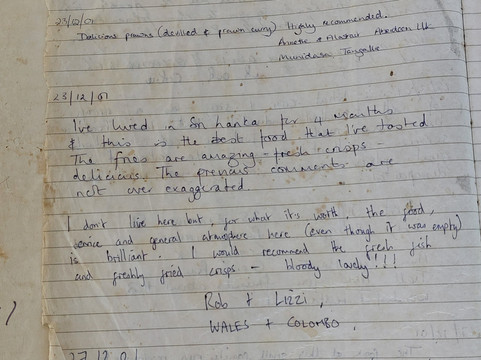 23/12/01
Delicious prawns (devilled & prawn curry) Highly recommended.
Annette & Alastair Aberdeen UK
Tangalle
23/12/01
I've lived in Sri Lanka for 4 months
& this is the best food that I've tasted
The fries are amazing - fresh crisps
delicious. The previous comments are
not over exaggerated
I don't live here but, for what it's worth, the food,
service and general atmosphere here (even though it was empty)
is brilliant. I would recommend the fresh fish
and freshly fried crisps - bloody lovely!!!
Rob & Lizzi,
WALES & COLOMBO.
27.12.01